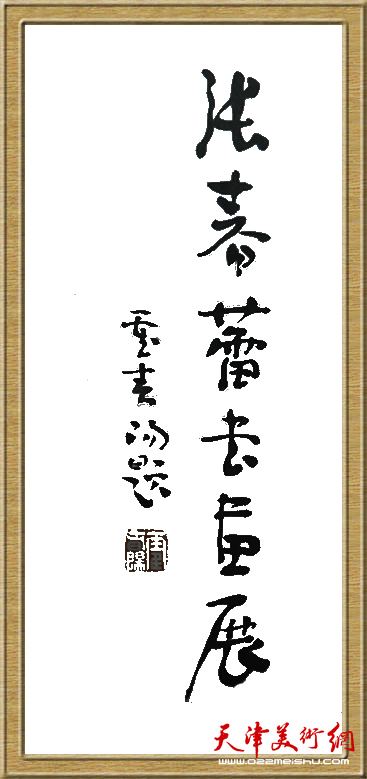 张春蕾书画展
霍春阳题
天津美術網
www.022meishu.com